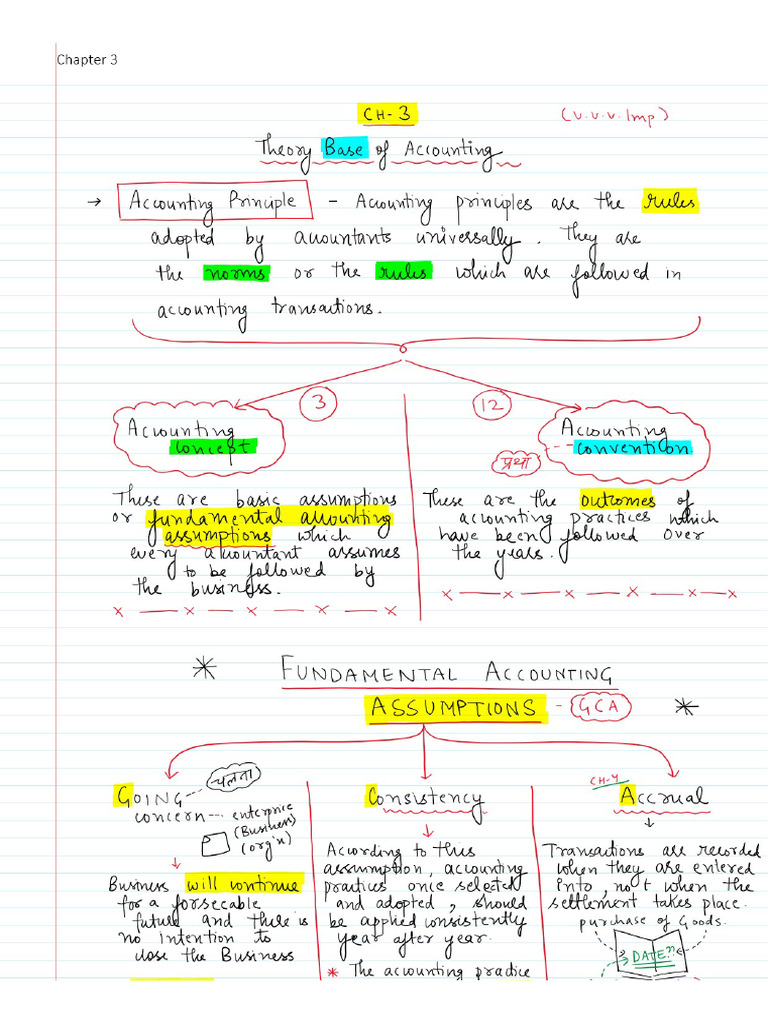 Chapter 3
CH-3
(v.v.v.Imp)
Theory Base of Accounting
→ Accounting Principle - Accounting principles are the rules
adopted by accountants universally. They are
the norms or the rules which are followed in
accounting transactions.
3
12
Accounting
concept
These are basic assumptions
or fundamental accounting
assumptions which
every accountant assumes
to be followed by
the business.
x — x — x — x — x
Accounting
प्रथा
convention
These are the outcomes of
accounting practices which
have been followed over
the years.
x — x — x — x — x — x
* FUNDAMENTAL ACCOUNTING
ASSUMPTIONS - GCA *
GOING
चलता
concern
enterprice
(Business)
(orgn)
Business will continue
for a forsecable
future and there is
no intention to
close the Business
Consistency
According to this
assumption, accounting
practices once selected
and adopted, should
be applied consistently
year after year.
* The accounting practice
CH-4
Accrual
Transactions are recorded
when they are entered
into, not when the
settlement takes place.
purchase of Goods.
DATE??